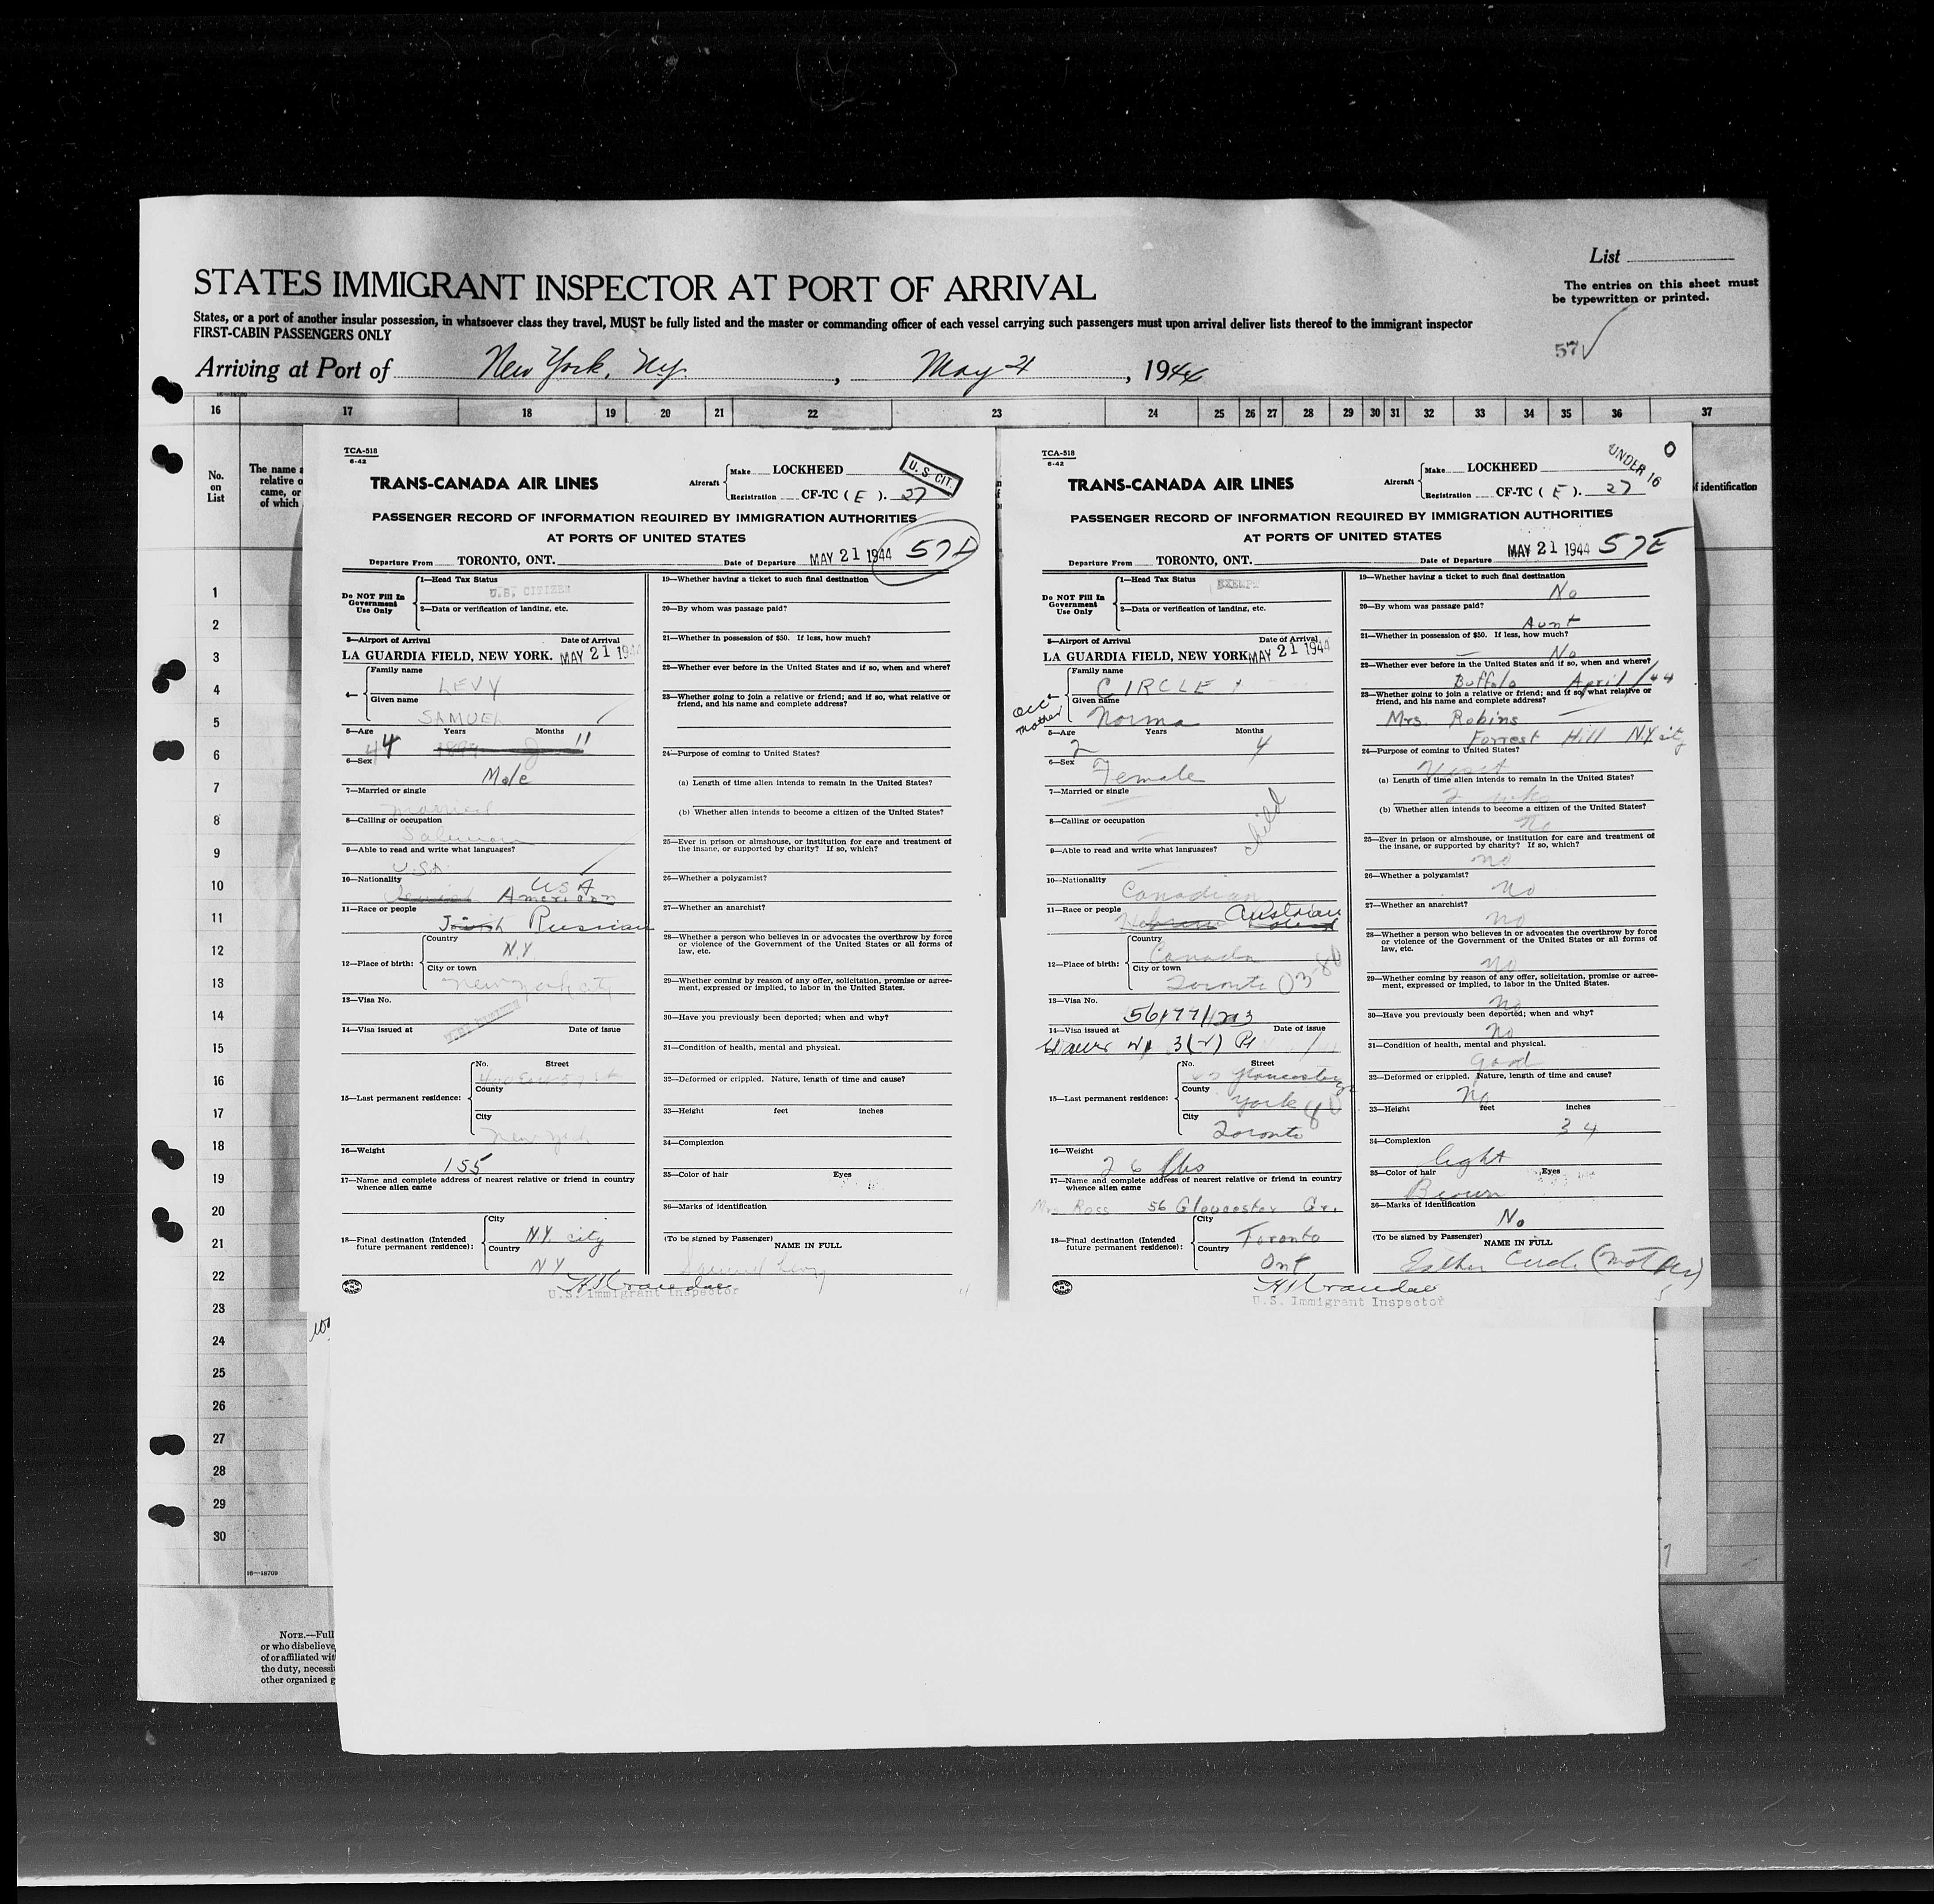 List
The entries on this sheet must
be typewritten or printed.
STATES IMMIGRANT INSPECTOR AT PORT OF ARRIVAL
States, or a port of another insular possession, in whatsoever class they travel, MUST be fully listed and the master or commanding officer of each vessel carrying such passengers must upon arrival deliver lists thereof to the immigrant inspector
FIRST-CABIN PASSENGERS ONLY
57
Arriving at Port of New York, N.Y. , May 21 , 1944
16 17 18 19 20 21 22 23 24 25 26 27 28 29 30 31 32 33 34 35 36 37
No.
on
List
The name a
relative o
came, or
of which
f identification
1
2
3
4
5
6
7
8
9
10
11
12
13
14
15
16
17
18
19
20
21
22
23
24
25
26
27
28
29
30
16—18709
NOTE.—Full
or who disbelieve
of or affiliated wit
the duty, necessi
other organized g
TCA-518
6-42
TRANS-CANADA AIR LINES
Aircraft
Make LOCKHEED
Registration CF-TC ( E ). 27
U. S. CIT.
PASSENGER RECORD OF INFORMATION REQUIRED BY IMMIGRATION AUTHORITIES
AT PORTS OF UNITED STATES
57D
Departure From TORONTO, ONT. Date of Departure MAY 21 1944
Do NOT Fill In
Government
Use Only
1—Head Tax Status
U.S. CITIZEN
2—Data or verification of landing, etc.
3—Airport of Arrival Date of Arrival
LA GUARDIA FIELD, NEW YORK. MAY 21 194
4
Family name
LEVY
Given name
SAMUEL
5—Age Years Months
44 11
6—Sex
Male
7—Married or single
Married
8—Calling or occupation
Salesman
9—Able to read and write what languages?
U.S.A.
10—Nationality
USA
American
11—Race or people
Russian
12—Place of birth:
Country
N.Y.
City or town
New York City
13—Visa No.
14—Visa issued at Date of issue
15—Last permanent residence:
No. Street
County
City
New York
16—Weight
155
17—Name and complete address of nearest relative or friend in country
whence alien came
18—Final destination (Intended
future permanent residence):
City
N.Y. city
Country
N Y
U.S. Immigrant Inspector
19—Whether having a ticket to such final destination
20—By whom was passage paid?
21—Whether in possession of $50. If less, how much?
22—Whether ever before in the United States and if so, when and where?
23—Whether going to join a relative or friend; and if so, what relative or
friend, and his name and complete address?
24—Purpose of coming to United States?
(a) Length of time alien intends to remain in the United States?
(b) Whether alien intends to become a citizen of the United States?
25—Ever in prison or almshouse, or institution for care and treatment of
the insane, or supported by charity? If so, which?
26—Whether a polygamist?
27—Whether an anarchist?
28—Whether a person who believes in or advocates the overthrow by force
or violence of the Government of the United States or all forms of
law, etc.
29—Whether coming by reason of any offer, solicitation, promise or agree-
ment, expressed or implied, to labor in the United States.
30—Have you previously been deported; when and why?
31—Condition of health, mental and physical.
32—Deformed or crippled. Nature, length of time and cause?
33—Height feet inches
34—Complexion
35—Color of hair Eyes
36—Marks of identification
(To be signed by Passenger)
NAME IN FULL
Samuel Levy
TCA-518
6-42
TRANS-CANADA AIR LINES
Aircraft
Make LOCKHEED
Registration CF-TC ( E ). 27
UNDER 16
O
PASSENGER RECORD OF INFORMATION REQUIRED BY IMMIGRATION AUTHORITIES
AT PORTS OF UNITED STATES
Departure From TORONTO, ONT. Date of Departure MAY 21 1944 57E
Do NOT Fill In
Government
Use Only
1—Head Tax Status
EXEMPT
2—Data or verification of landing, etc.
3—Airport of Arrival Date of Arrival
LA GUARDIA FIELD, NEW YORK. MAY 21 1944
acc
mother
4
Family name
CIRCLE
Given name
Norma
5—Age Years Months
2 4
6—Sex
Female
7—Married or single
8—Calling or occupation
child
9—Able to read and write what languages?
10—Nationality
Canadian
11—Race or people
Hebrew Austrian
12—Place of birth:
Country
Canada
City or town
Toronto
13—Visa No.
14—Visa issued at Date of issue
15—Last permanent residence:
No. Street
County
York
City
Toronto
16—Weight
26 lbs
17—Name and complete address of nearest relative or friend in country
whence alien came
Mrs Ross 56 Gloucester Gr.
18—Final destination (Intended
future permanent residence):
City
Toronto
Country
Ont
U.S. Immigrant Inspector
19—Whether having a ticket to such final destination
No
20—By whom was passage paid?
Aunt
21—Whether in possession of $50. If less, how much?
No
22—Whether ever before in the United States and if so, when and where?
Buffalo April/44
23—Whether going to join a relative or friend; and if so, what relative or
friend, and his name and complete address?
Mrs. Robins
Forrest Hill NY city
24—Purpose of coming to United States?
Visit
(a) Length of time alien intends to remain in the United States?
2 wks
(b) Whether alien intends to become a citizen of the United States?
No
25—Ever in prison or almshouse, or institution for care and treatment of
the insane, or supported by charity? If so, which?
no
26—Whether a polygamist?
no
27—Whether an anarchist?
no
28—Whether a person who believes in or advocates the overthrow by force
or violence of the Government of the United States or all forms of
law, etc.
no
29—Whether coming by reason of any offer, solicitation, promise or agree-
ment, expressed or implied, to labor in the United States.
no
30—Have you previously been deported; when and why?
no
31—Condition of health, mental and physical.
good
32—Deformed or crippled. Nature, length of time and cause?
No
33—Height feet inches
34
34—Complexion
light
35—Color of hair Eyes
Brown
36—Marks of identification
No
(To be signed by Passenger)
NAME IN FULL
Esther Circle (mother)